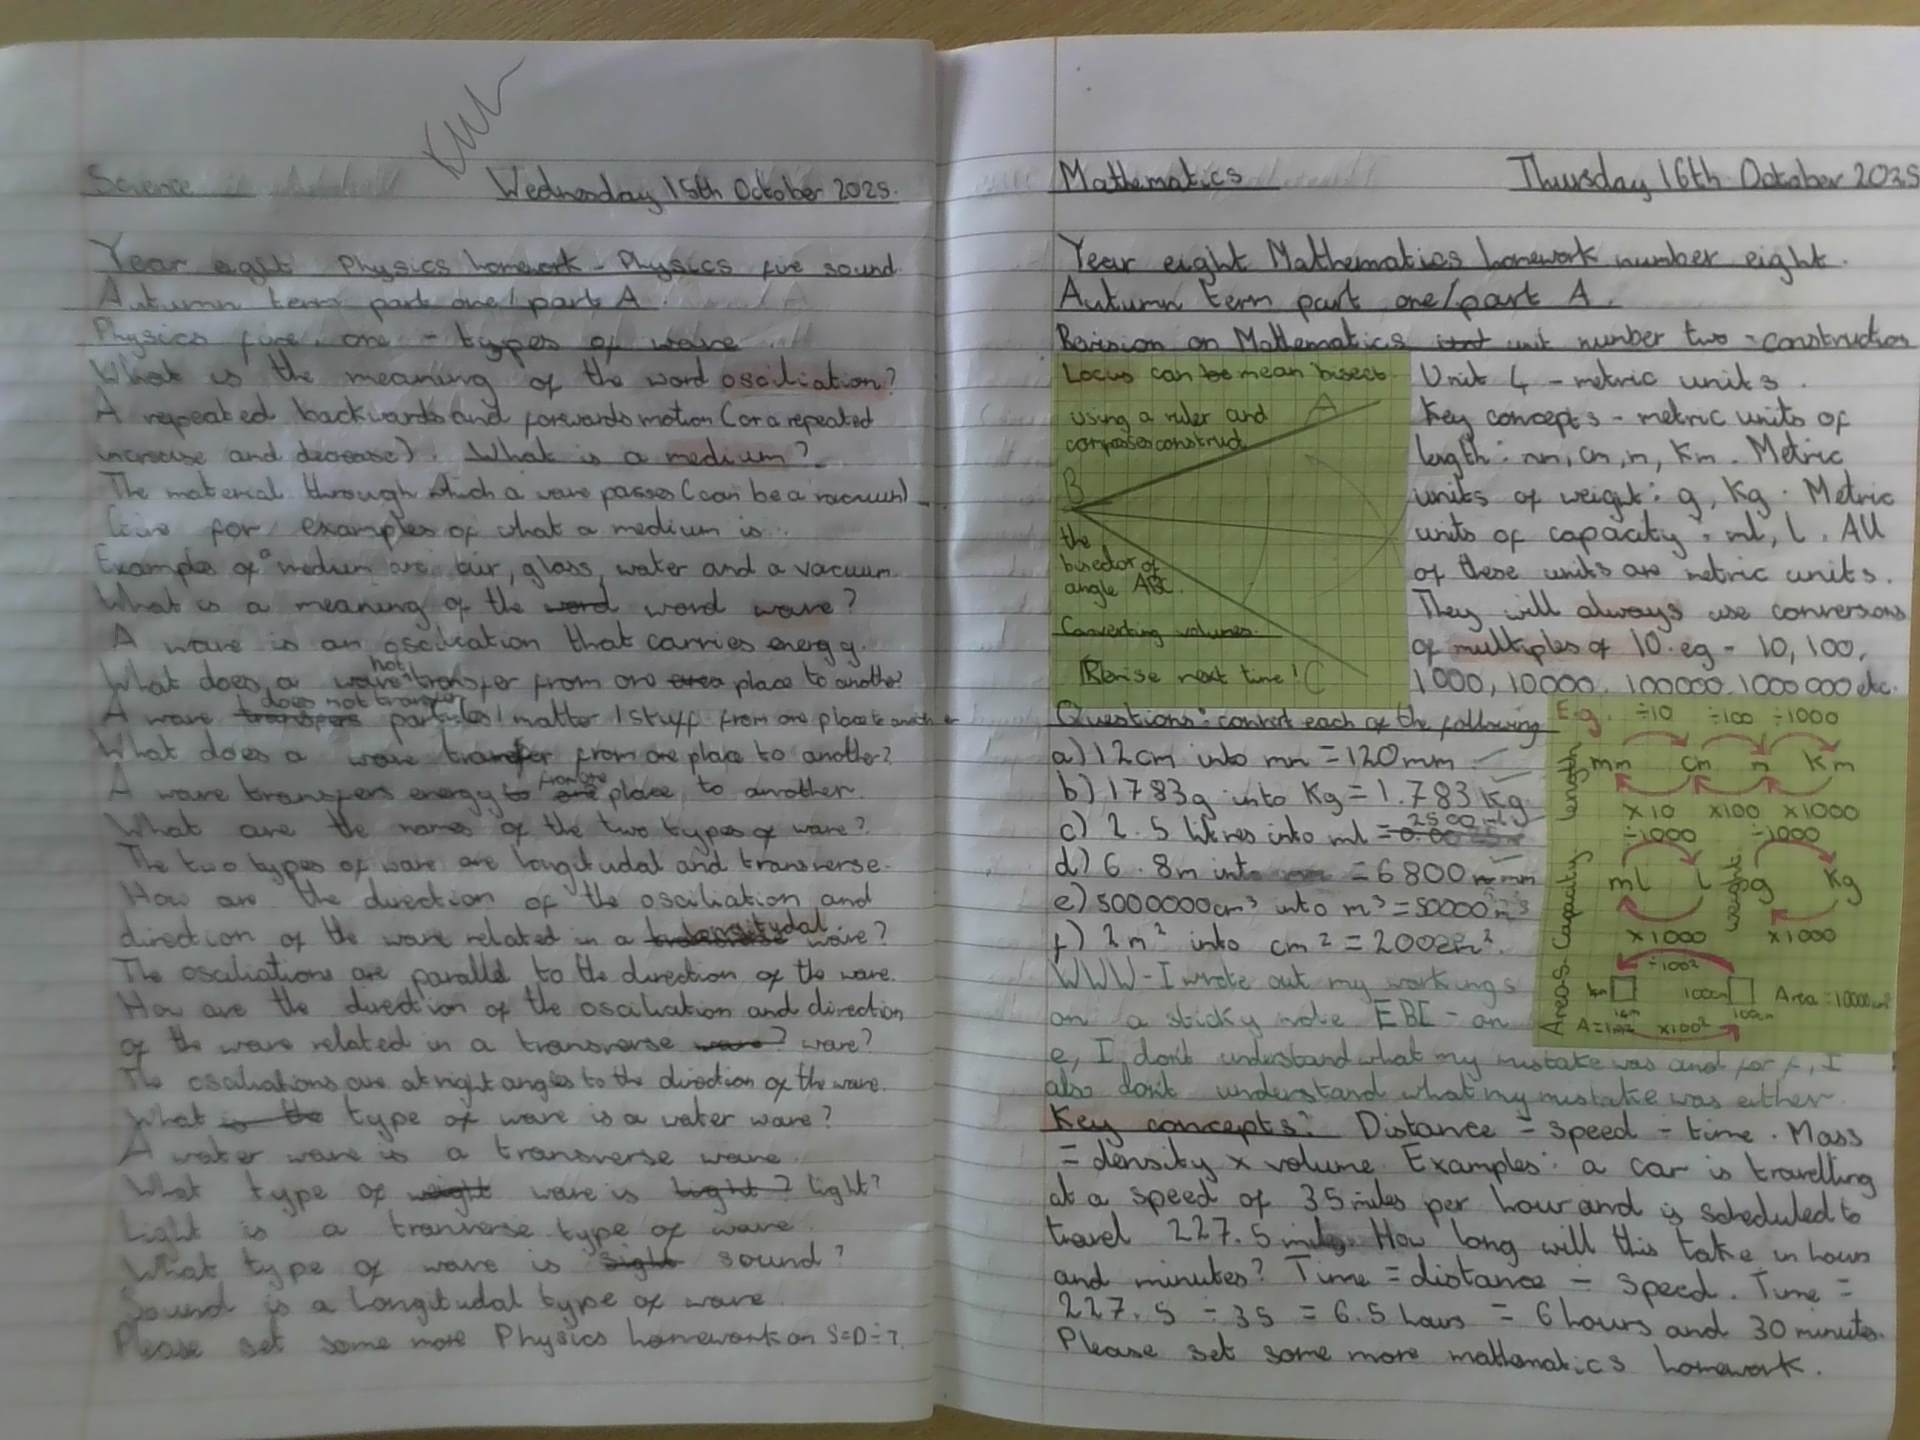 Science
Wednesday 15th October 2025.
Year egit Physics homework - Physics five sound
Autumn term part one/part A.
Physics five, one - types of wave
What is the meaning of the word osciliation?
A repeated backwards and forwards motion (or a repeated
increase and decrease). What is a medium?
The material through which a wave passes (can be a vacuum)
for examples of what a medium is.
Examples of medium are air, glass, water and a vacuum.
What is a meaning of the word word wave?
A wave is an osciliation that carries energy.
What does a wave not transfer from one area place to another?
A wave transfers does not transfer particles/matter/stuff from one place to another
What does a wave transfer from one place to another?
A wave transfers energy to from one one place to another.
What are the names of the two types of wave?
The two types of wave are longitudal and transverse.
How are the direction of the osciliation and
direction of the wave related in a longitudal wave?
The osciliations are parallel to the direction of the wave.
How are the direction of the osciliation and direction
of the wave related in a transverse wave? wave?
The osciliations are at right angles to the direction of the wave.
What is the type of wave is a water wave?
A water wave is a transverse wave.
What type of weight wave is light? light?
Light is a tranverse type of wave.
What type of wave is sight sound?
Sound is a longitudal type of wave.
Please set some more Physics homework on S=D÷T.
Mathematics
Thursday 16th October 2025
Year eight Mathematics homework number eight.
Autumn term part one/part A.
Revision on Mathematics unit unit number two - construction
Locus can be mean bisect
using a ruler and
compasses construct
A
B
the
bisector of
angle ABC.
Converting volumes.
Revise next time!
C
Unit 4 - metric units.
Key concepts - metric units of
length: mm, cm, m, Km. Metric
units of weight: g, Kg. Metric
units of capacity: ml, l. All
of these units are metric units.
They will always use conversions
of multiples of 10. eg - 10, 100,
1000, 10000, 100000, 1000000 etc.
Questions: convert each of the following
a) 12cm into mm = 120mm.
b) 1783g into Kg = 1.783Kg
c) 2.5 litres into ml = 2500ml
d) 6.8m into mm = 6800 mm
e) 5000000cm³ into m³ = 50000m³
f) 2m² into cm² = 200cm².
E.g. ÷10 ÷100 ÷1000
length mm cm m Km
×10 ×100 ×1000
÷1000 ÷1000
Capacity ml l weight g Kg
×1000 ×1000
Areas
÷100²
1m 100cm Area = 10000cm²
1m 100cm
A=1m² ×100²
WWW - I wrote out my workings
on a sticky note EBI - on
e, I don't understand what my mistake was and for f, I
also don't understand what my mistake was either.
Key concepts: Distance = speed ÷ time. Mass
= density × volume. Examples: a car is travelling
at a speed of 35 miles per hour and is scheduled to
travel 227.5 miles. How long will this take in hours
and minutes? Time = distance ÷ speed. Time =
227.5 ÷ 35 = 6.5 hours = 6 hours and 30 minutes.
Please set some more mathematics homework.